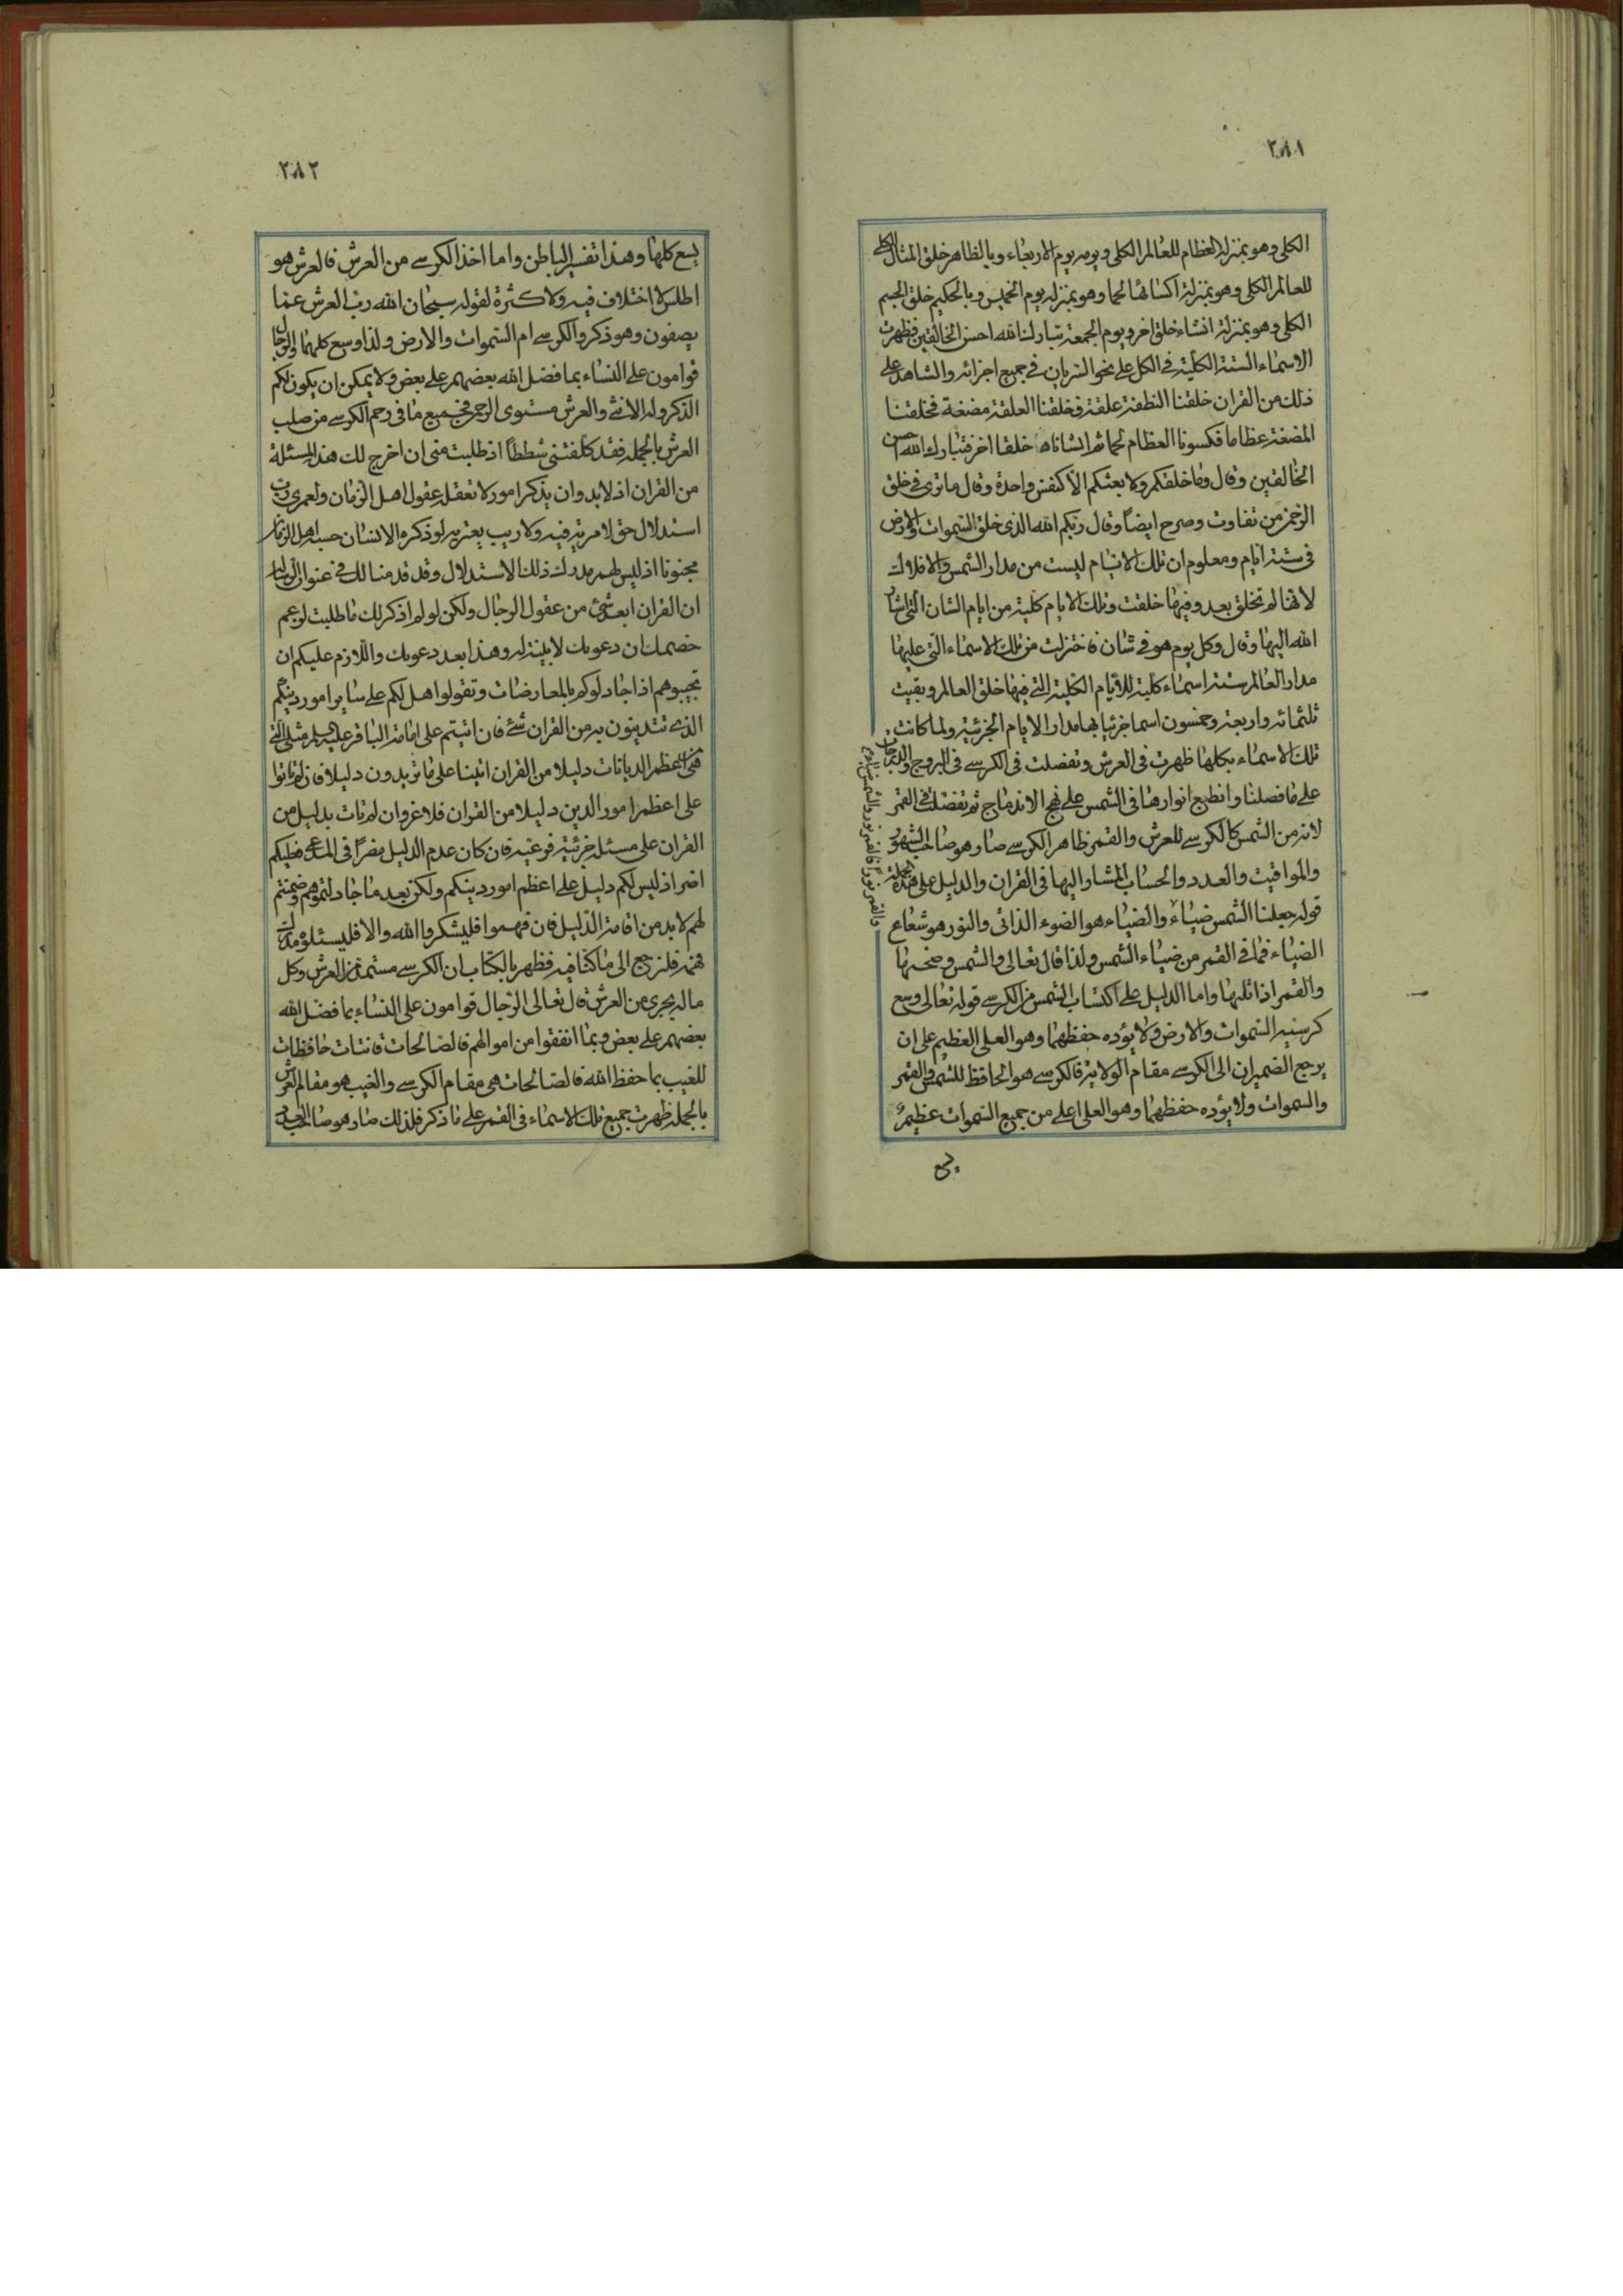 ٢٨١
الكلى وهو بمنزلة العظام للعالم الكلى ويومه يوم الاربعاء وبالظاهر خلق المثال الكلى
للعالم الكلى وهو بمنزلة اكتسائها لحما وهو بمنزلة يوم الخميس وبالحكيم خلق الجسم
الكلى وهو بمنزلة انشاء خلق اخر ويوم الجمعة تبارك الله احسن الخالقين فظهرت
الاسماء الستة الكلية فى الكل على نحو السريان فى جميع اجزائه والشاهد على
ذلك من القران خلقنا النطفة علقة فخلقنا العلقة مضغة فخلقنا
المضغة عظاما فكسونا العظام لحما ثم انشاناه خلقا اخر فتبارك الله احسن
الخالقين وقال وما خلقكم ولا بعثكم الا كنفس واحدة وقال ما ترى فى خلق
الرحمن من تفاوت وصرح ايضاً وقال ربكم الله الذى خلق السموات والارض
فى ستة ايام ومعلوم ان تلك الايام ليست من مدار الشمس والافلاك
لانها لم تخلق بعد وفيها خلقت وتلك الايام كلية من ايام الشان التى اشار
الله اليها وقال وكل يوم هو فى شان فاختزلت من تلك الاسماء التى عليها
مدار العالم ستة اسماء كلية للايام الكلية التى فيها خلق العالم وبقيت
ثلثمائة واربعة وخمسون اسما جزئيا بها مدار الايام الجزئية ولما كانت
تلك الاسماء بكلها ظهرت فى العرش وتفصلت فى الكرسى فى البروج والدرجات
على ما فصلنا وانطبع انوارها فى الشمس على نهج الاندماج ثم تفصلت فى القمر
لانه من الشمس كالكرسى للعرش والقمر ظاهر الكرسى صار هو صاحب الشهور
والمواقيت والعدد والحساب المشار اليها فى القران والدليل على هذه الجملة
قوله جعلنا الشمس ضياءً والضياء هو الضوء الذاتى والنور هو شعاع
الضياء فما فى القمر من ضياء الشمس ولذا قال تعالى والشمس وضحيها
والقمر اذا تليها واما الدليل على اكتساب الشمس من الكرسى قوله تعالى وسع
كرسيه السموات والارض ولا يؤده حفظهما وهو العلى العظيم على ان
يرجع الضميران الى الكرسى مقام الولاية فالكرسى هو الحافظ للشمس والقمر
والسموات ولا يؤده حفظهما وهو العلى اعلى من جميع السموات عظيم
يسع
٢٨٢
يسع كلها وهذا تفسير الباطن واما اخذ الكرسى من العرش فالعرش هو
اطلس لا اختلاف فيه ولا كثرة لقوله سبحان الله رب العرش عما
يصفون وهو ذكر والكرسى ام السموات والارض ولذا وسع كلهما والرجال
قوامون على النساء بما فضل الله بعضهم على بعض ولا يمكن ان يكون لكم
الذكر وله الانثى والعرش مستوى الرحمن فجميع ما فى رحم الكرسى من صلب
العرش بالجملة فقد كلفتنى شططاً اذ طلبت منى ان اخرج لك هذه المسئلة
من القران اذ لابد وان يذكر امور لا تعقله عقول اهل الزمان ولعمرى رب
استدلال حق لا مرية فيه ولا ريب يعتريه لو ذكره الانسان حسبه اهل الزمان
مجنونا اذ ليس لهم مدرك ذلك الاستدلال وقد قدمنا لك فى عنوان الرسالة
ان القران ابعد شئ من عقول الرجال ولكن لو لم اذكر لك ما طلبت لزعم
خصمك ان دعوىك لا بينة له وهذا بعد دعوىك واللازم عليكم ان
تجيبوهم اذا جادلوكم بالمعارضات وتقولوا هل لكم على ساير امور دينكم
الذى تتدينون به من القران شئ فان اتيتم على امامة الباقر عليه السلم مثلا التى
هى اعظم الديانات دليلا من القران اتينا على ما تريدون دليلا فان لم تاتوا
على اعظم امور الدين دليلا من القران فلا غرو ان لم نات بدليل من
القران على مسئلة جزئية فرعية فان كان عدم الدليل مضراً فى المدعى فعليكم
اضر اذ ليس لكم دليل على اعظم امور دينكم ولكن بعد ما جادلتموهم وضمنتم
لهم لابد من اقامة الدليل فان فهموا فليشكروا الله والا فليسئلوه مدرك
فهمه فلنرجع الى ما كنا فيه فظهر بالكتاب ان الكرسى مستمد من العرش وكل
ماله يجرى من العرش قال تعالى الرجال قوامون على النساء بما فضل الله
بعضهم على بعض وبما انفقوا من اموالهم فالصالحات قانتات حافظات
للغيب بما حفظ الله فالصالحات هى مقام الكرسى والغيب هو مقام العرش
بالجملة ظهرت جميع تلك الاسماء فى القمر على ما ذكر فلذلك صار هو صاحب العدد